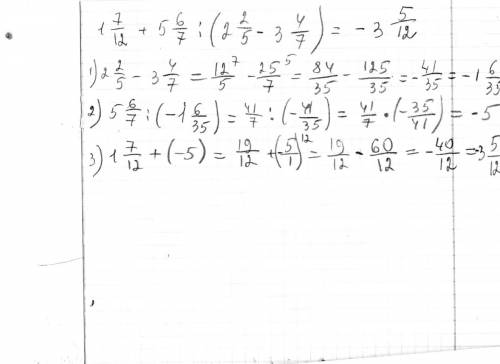 1 7/12 + 5 6/7 : (2 2/5 - 3 4/7) = - 3 5/12
1) 2 2/5 - 3 4/7 = 12/5 ⁷ - 25/7 ⁵ = 84/35 - 125/35 = - 41/35 = -1 6/35
2) 5 6/7 : (-1 6/35) = 41/7 : (- 41/35) = 41/7 · (- 35/41) = -5
3) 1 7/12 + (-5) = 19/12 + (- 5/1) ¹² = 19/12 - 60/12 = - 40/12 = -3 5/12